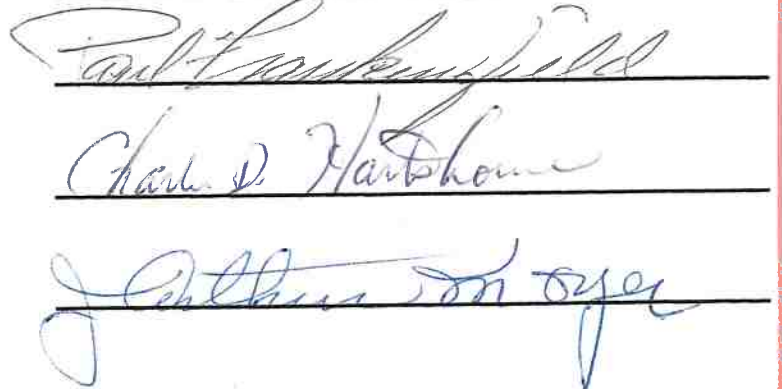 Paul Frankenfield
Charles D. Hartshorne
J Arthur Moyer